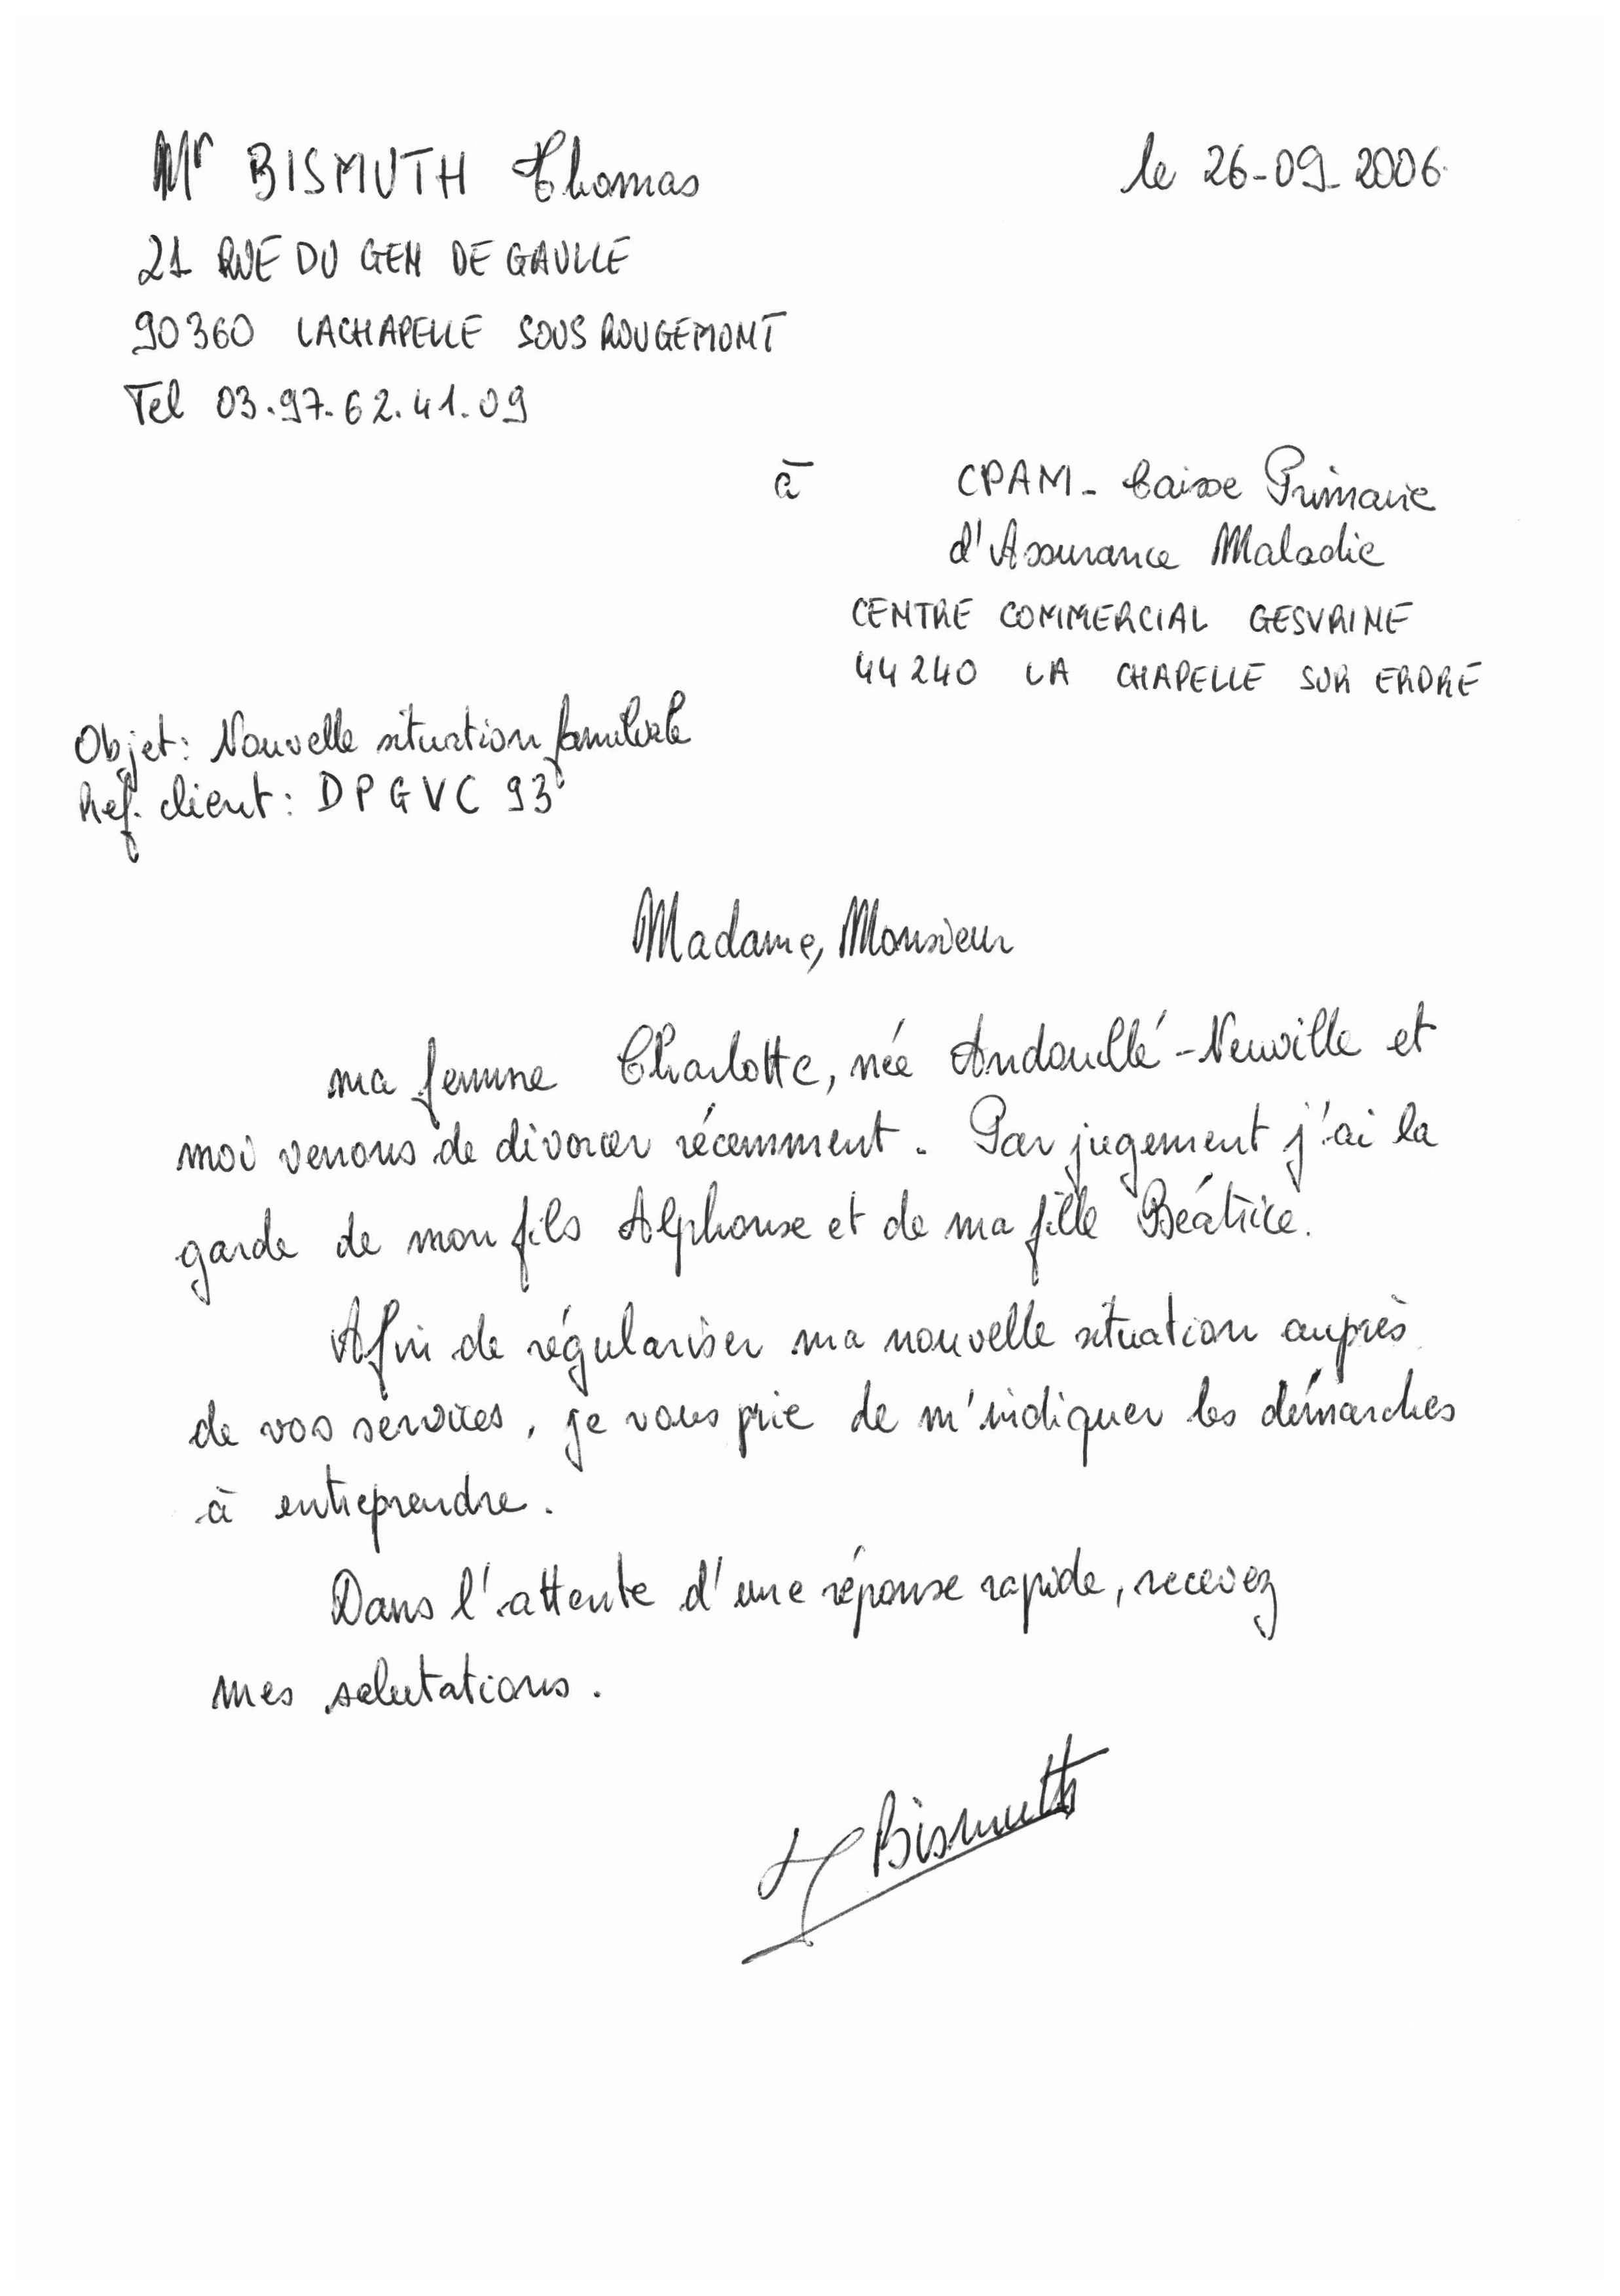 Mr BISMUTH Thomas
le 26-09-2006.
21 RUE DU GEN DE GAULLE
90360 LACHAPELLE SOUS ROUGEMONT
Tel 03.97.62.41.09
à
CPAM - Caisse Primaire
d'Assurance Maladie
CENTRE COMMERCIAL GESVRINE
44240 LA CHAPELLE SUR ERDRE
Objet: Nouvelle situation familiale
Ref. client: DPGVC 93
Madame, Monsieur
ma femme Charlotte, née Andouillé-Neuville et
moi venons de divorcer récemment. Par jugement j'ai la
garde de mon fils Alphonse et de ma fille Béatrice.
Afin de régulariser ma nouvelle situation auprès
de vos services, je vous prie de m'indiquer les démarches
à entreprendre.
Dans l'attente d'une réponse rapide, recevez
mes salutations.
Bismuth